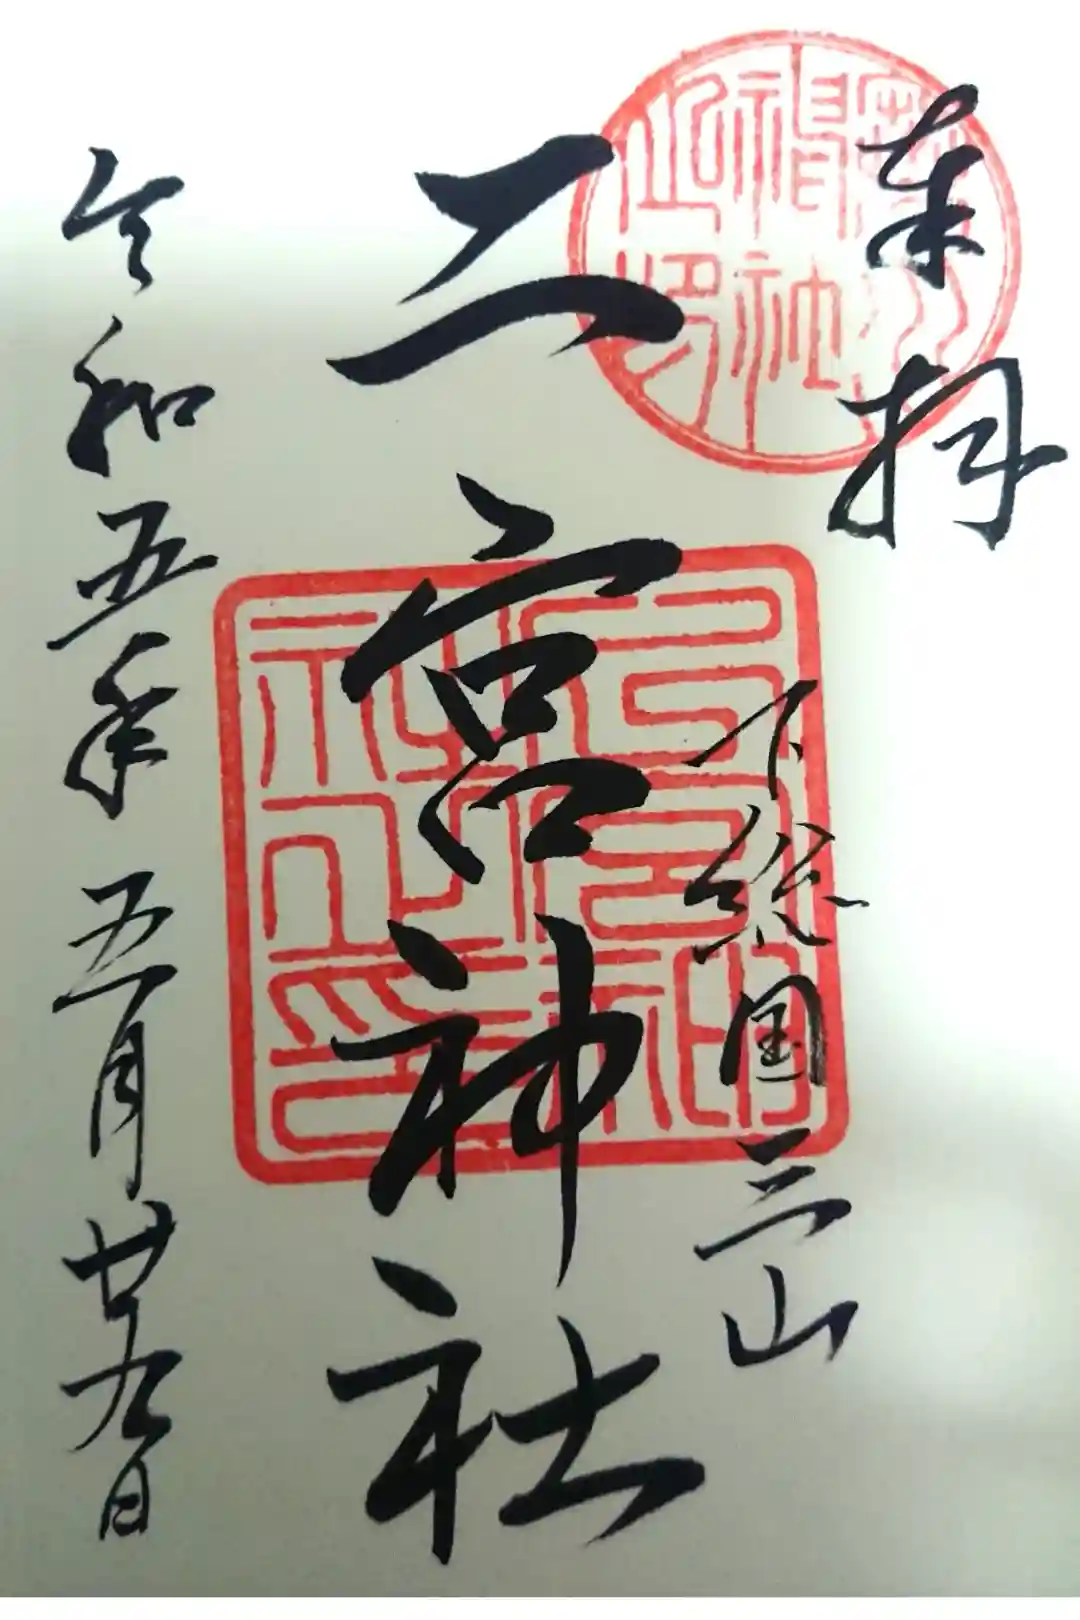 奉拝
下総国三山
二宮神社
令和五年五月廿九日